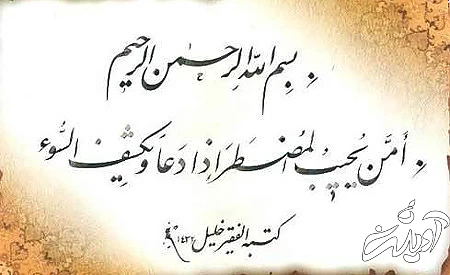 بسم الله الرحمن الرحيم
أمَّن يُجيبُ المُضطَرَ إذا دَعاَ وَيكشِفُ السُّوء
كتبه الفقير خليل